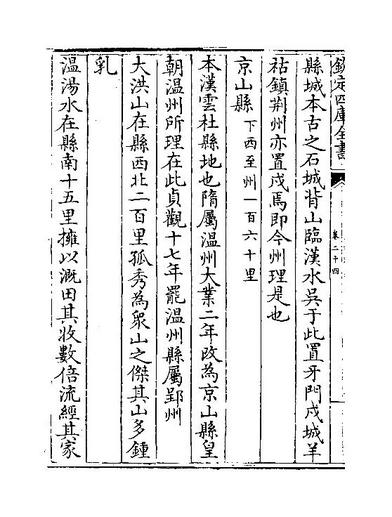 欽定四庫全書
卷二十四
縣城本古之石城背山臨漢水吳于此置牙門戍城羊
祜鎮荆州亦置戍焉即今州理是也
京山縣下西至州一百六十里
本漢雲杜縣地也隋屬温州大業二年改為京山縣皇
朝温州所理在此貞觀十七年罷温州縣屬郢州
大洪山在縣西北二百里孤秀為衆山之傑其山多鍾
乳
温湯水在縣南十五里擁以溉田其收數倍流經其家